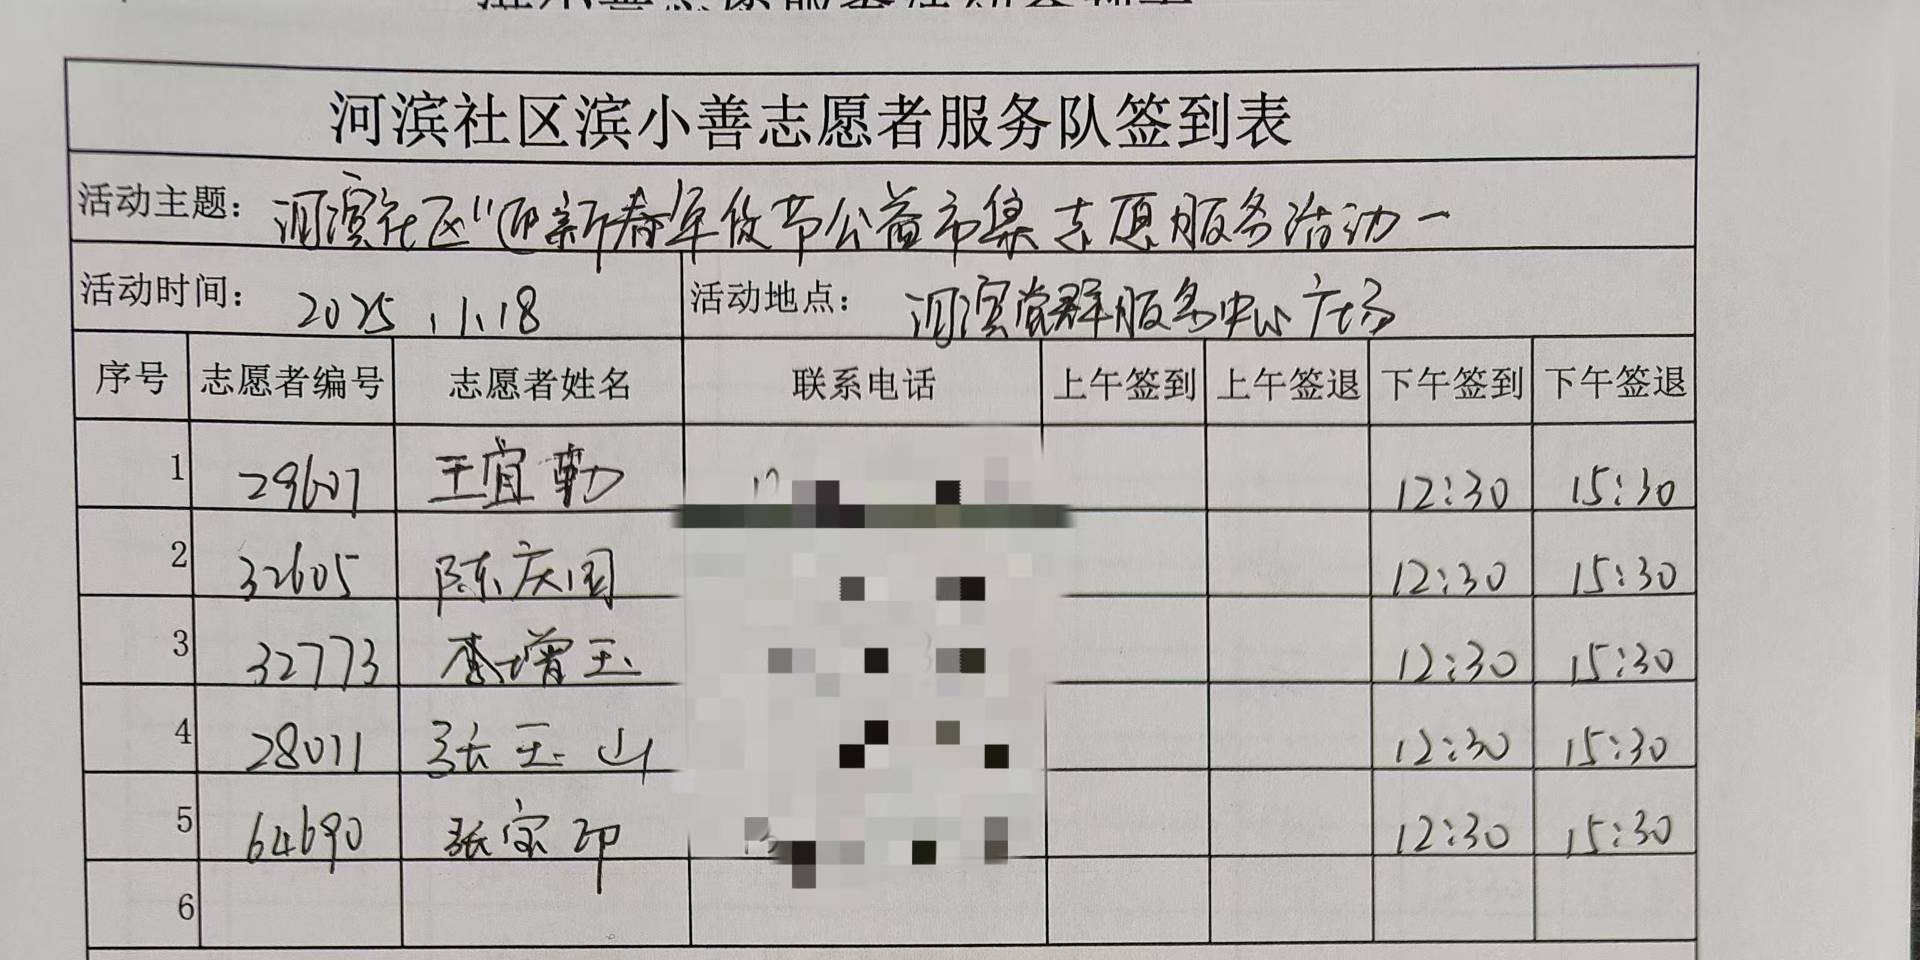 河滨社区滨小善志愿者服务队签到表
活动主题：河滨社区“迎新春年货节公益市集志愿服务活动一
活动时间： 2025.1.18 活动地点： 河滨党群服务中心广场
序号 志愿者编号 志愿者姓名 联系电话 上午签到 上午签退 下午签到 下午签退
1 29607 王宜勤 12:30 15:30
2 32605 陈庆国 12:30 15:30
3 32773 李增玉 12:30 15:30
4 28011 张玉山 12:30 15:30
5 64690 张宝印 12:30 15:30
6